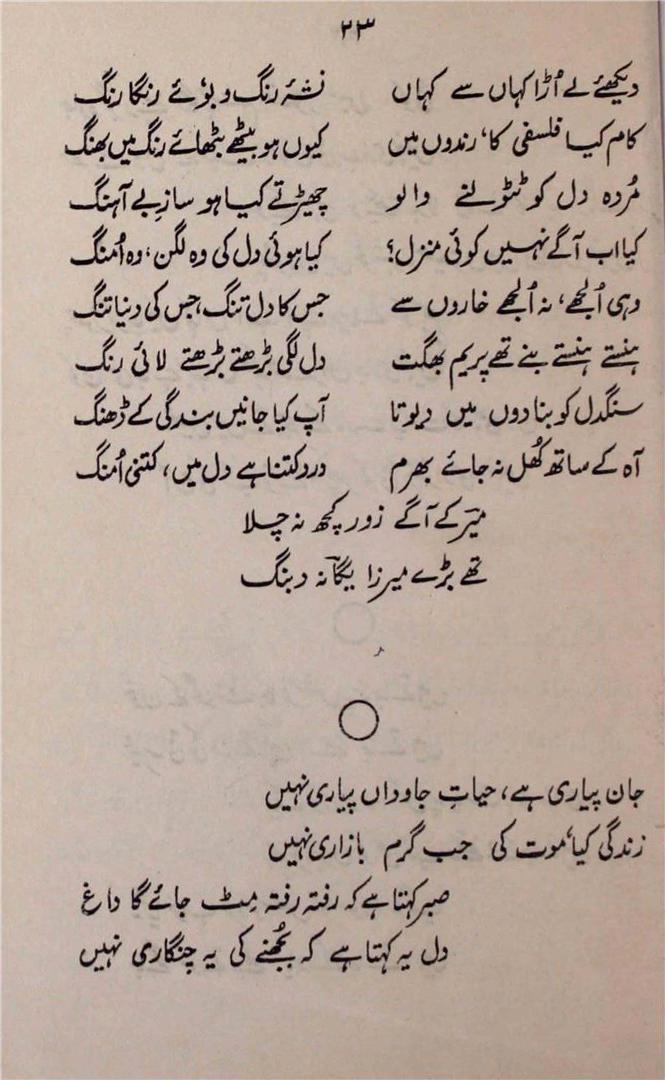 ۲۳
دیکھئے لے اُڑا کہاں سے کہاں نشۂ رنگ و بوئے رنگا رنگ
کام کیا فلسفی کا، رندوں میں کیوں ہو بیٹھے بٹھائے رنگ میں بھنگ
مُردہ دل کو ٹٹولنے والو چھیڑتے کیا ہو سازِ بے آہنگ
کیا اب آگے نہیں کوئی منزل؟ کیا ہوئی دل کی وہ لگن، وہ اُمنگ
وہی اُلجھے، نہ اُلجھے خاروں سے جس کا دل تنگ، جس کی دنیا تنگ
ہنستے ہنستے بنے تھے پریم بھگت دل لگی بڑھتے بڑھتے لائی رنگ
سنگدل کو بنا دوں میں دیوتا آپ کیا جانیں بندگی کے ڈھنگ
آہ کے ساتھ کُھل نہ جائے بھرم درد کتنا ہے دل میں، کتنی اُمنگ
میرؔ کے آگے زور کچھ نہ چلا
تھے بڑے میرزا یگانہؔ دبنگ
جان پیاری ہے، حیاتِ جاوداں پیاری نہیں
زندگی کیا، موت کی جب گرم بازاری نہیں
صبر کہتا ہے کہ رفتہ رفتہ مِٹ جائے گا داغ
دل یہ کہتا ہے کہ بُجھنے کی یہ چنگاری نہیں